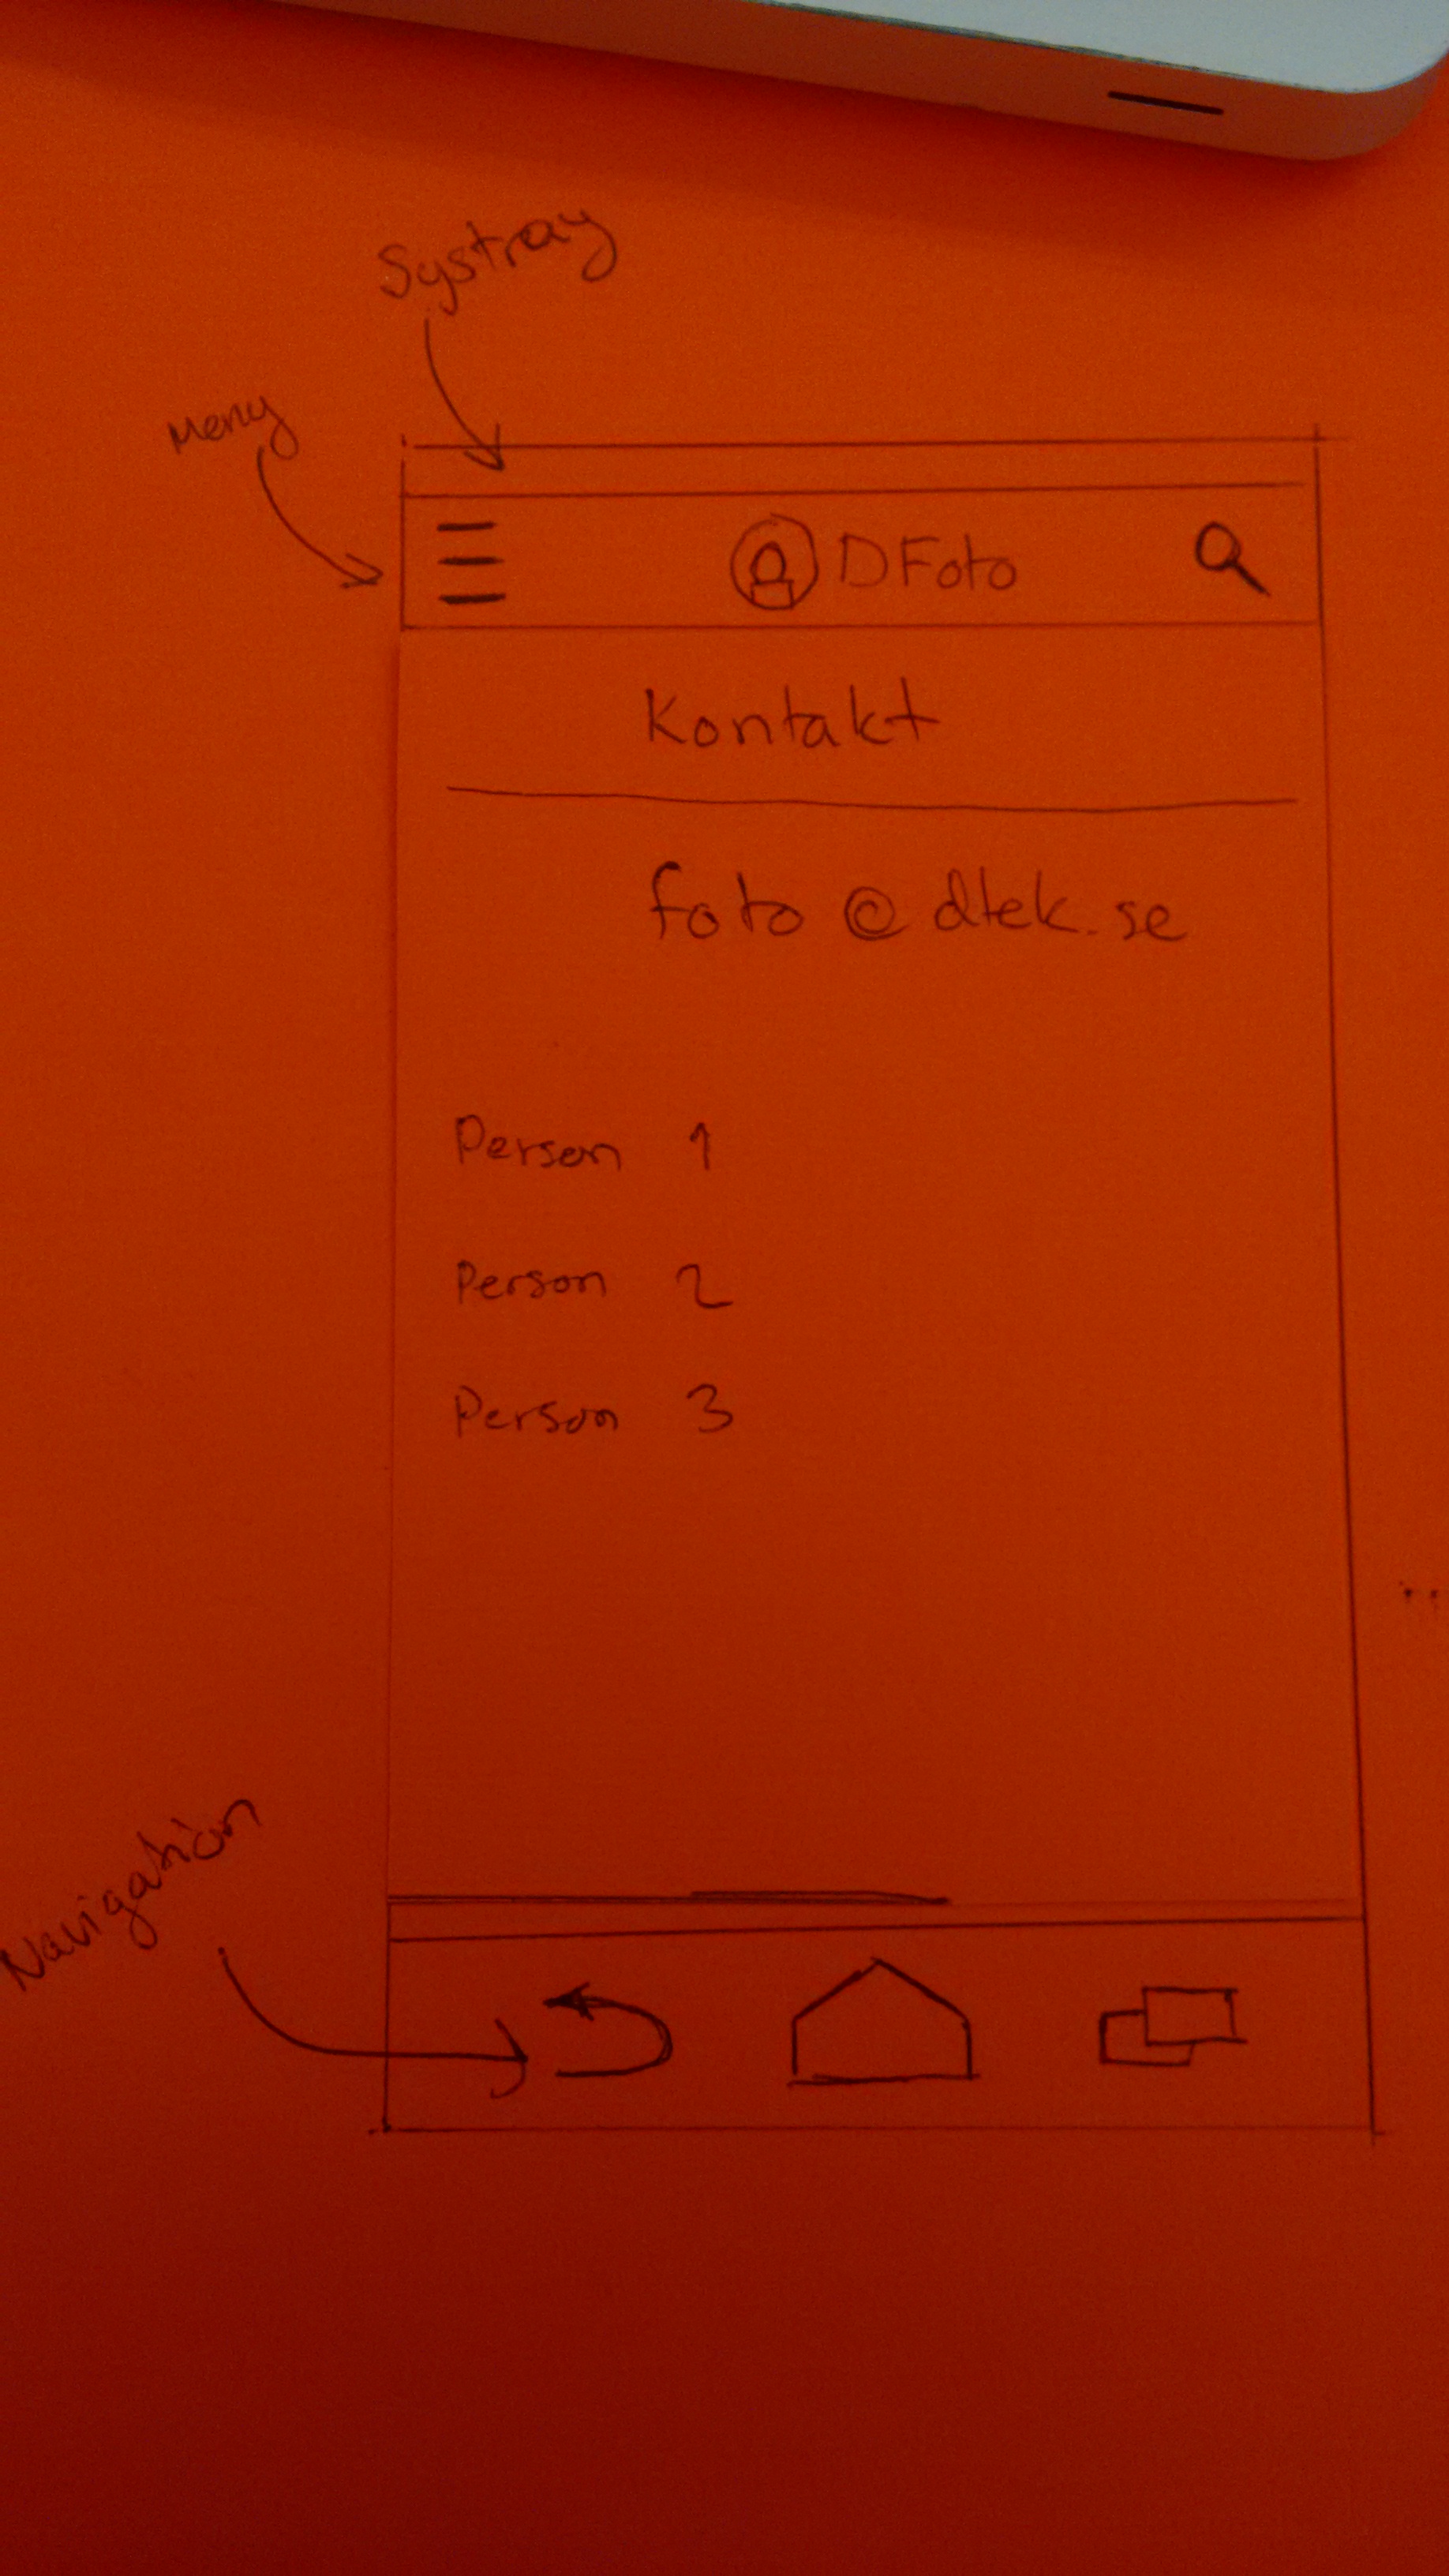 Systray
Meny
DFoto
Kontakt
foto@dtek.se
Person 1
Person 2
Person 3
Navigation